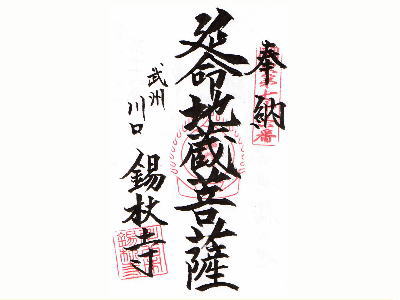 奉納
延命地蔵菩薩
武州
川口
錫杖寺